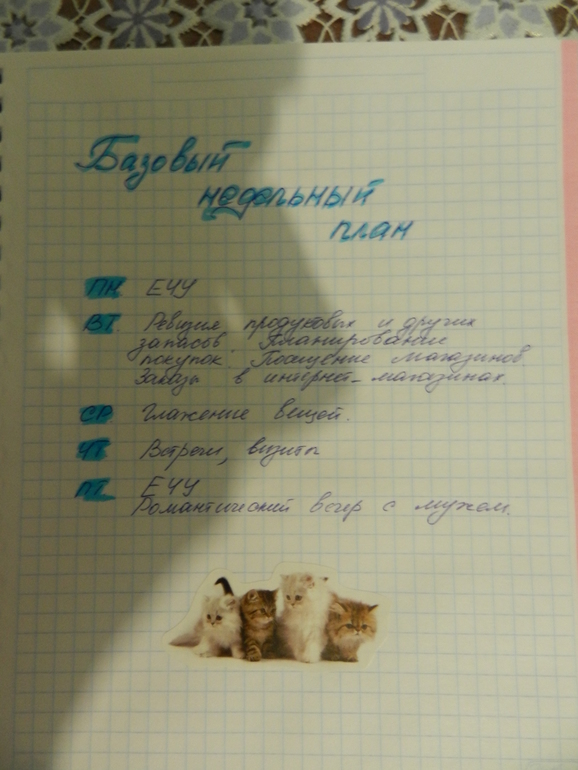 Базовый
недельный
план
ПН ЕЧУ
ВТ Ревизия продуковых и других
запасов. Планирование
покупок. Посещение магазинов.
Заказы в интернет-магазинах.
СР Глажение вещей.
ЧТ Встречи, визиты
ПТ ЕЧУ
Романтический вечер с мужем.